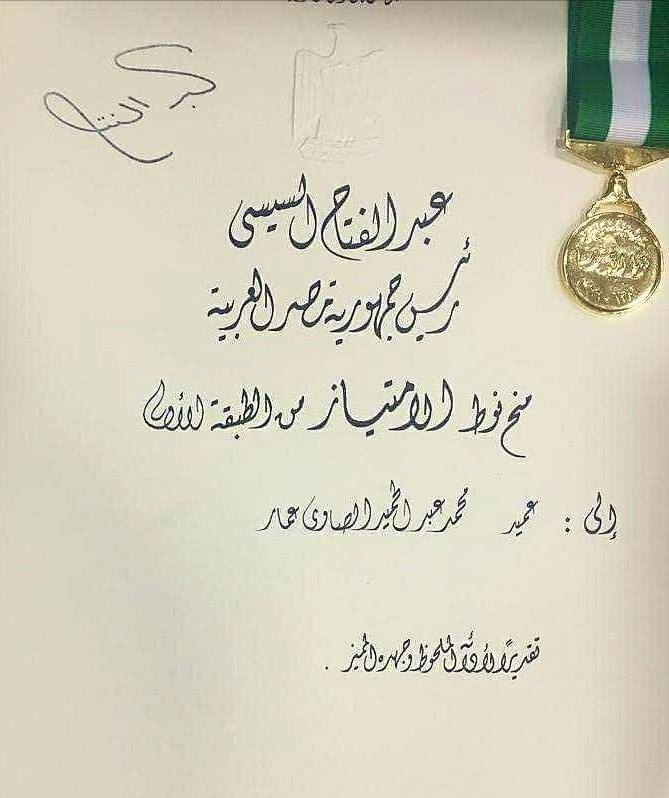 عبد الفتاح السيسى
رئيس جمهورية مصر العربية
منح نوط الامتياز من الطبقة الأولى
إلى : عميد محمد عبد الحميد الصاوى عمار
تقديرًا لأدائه الملحوظ وجهده المميز .